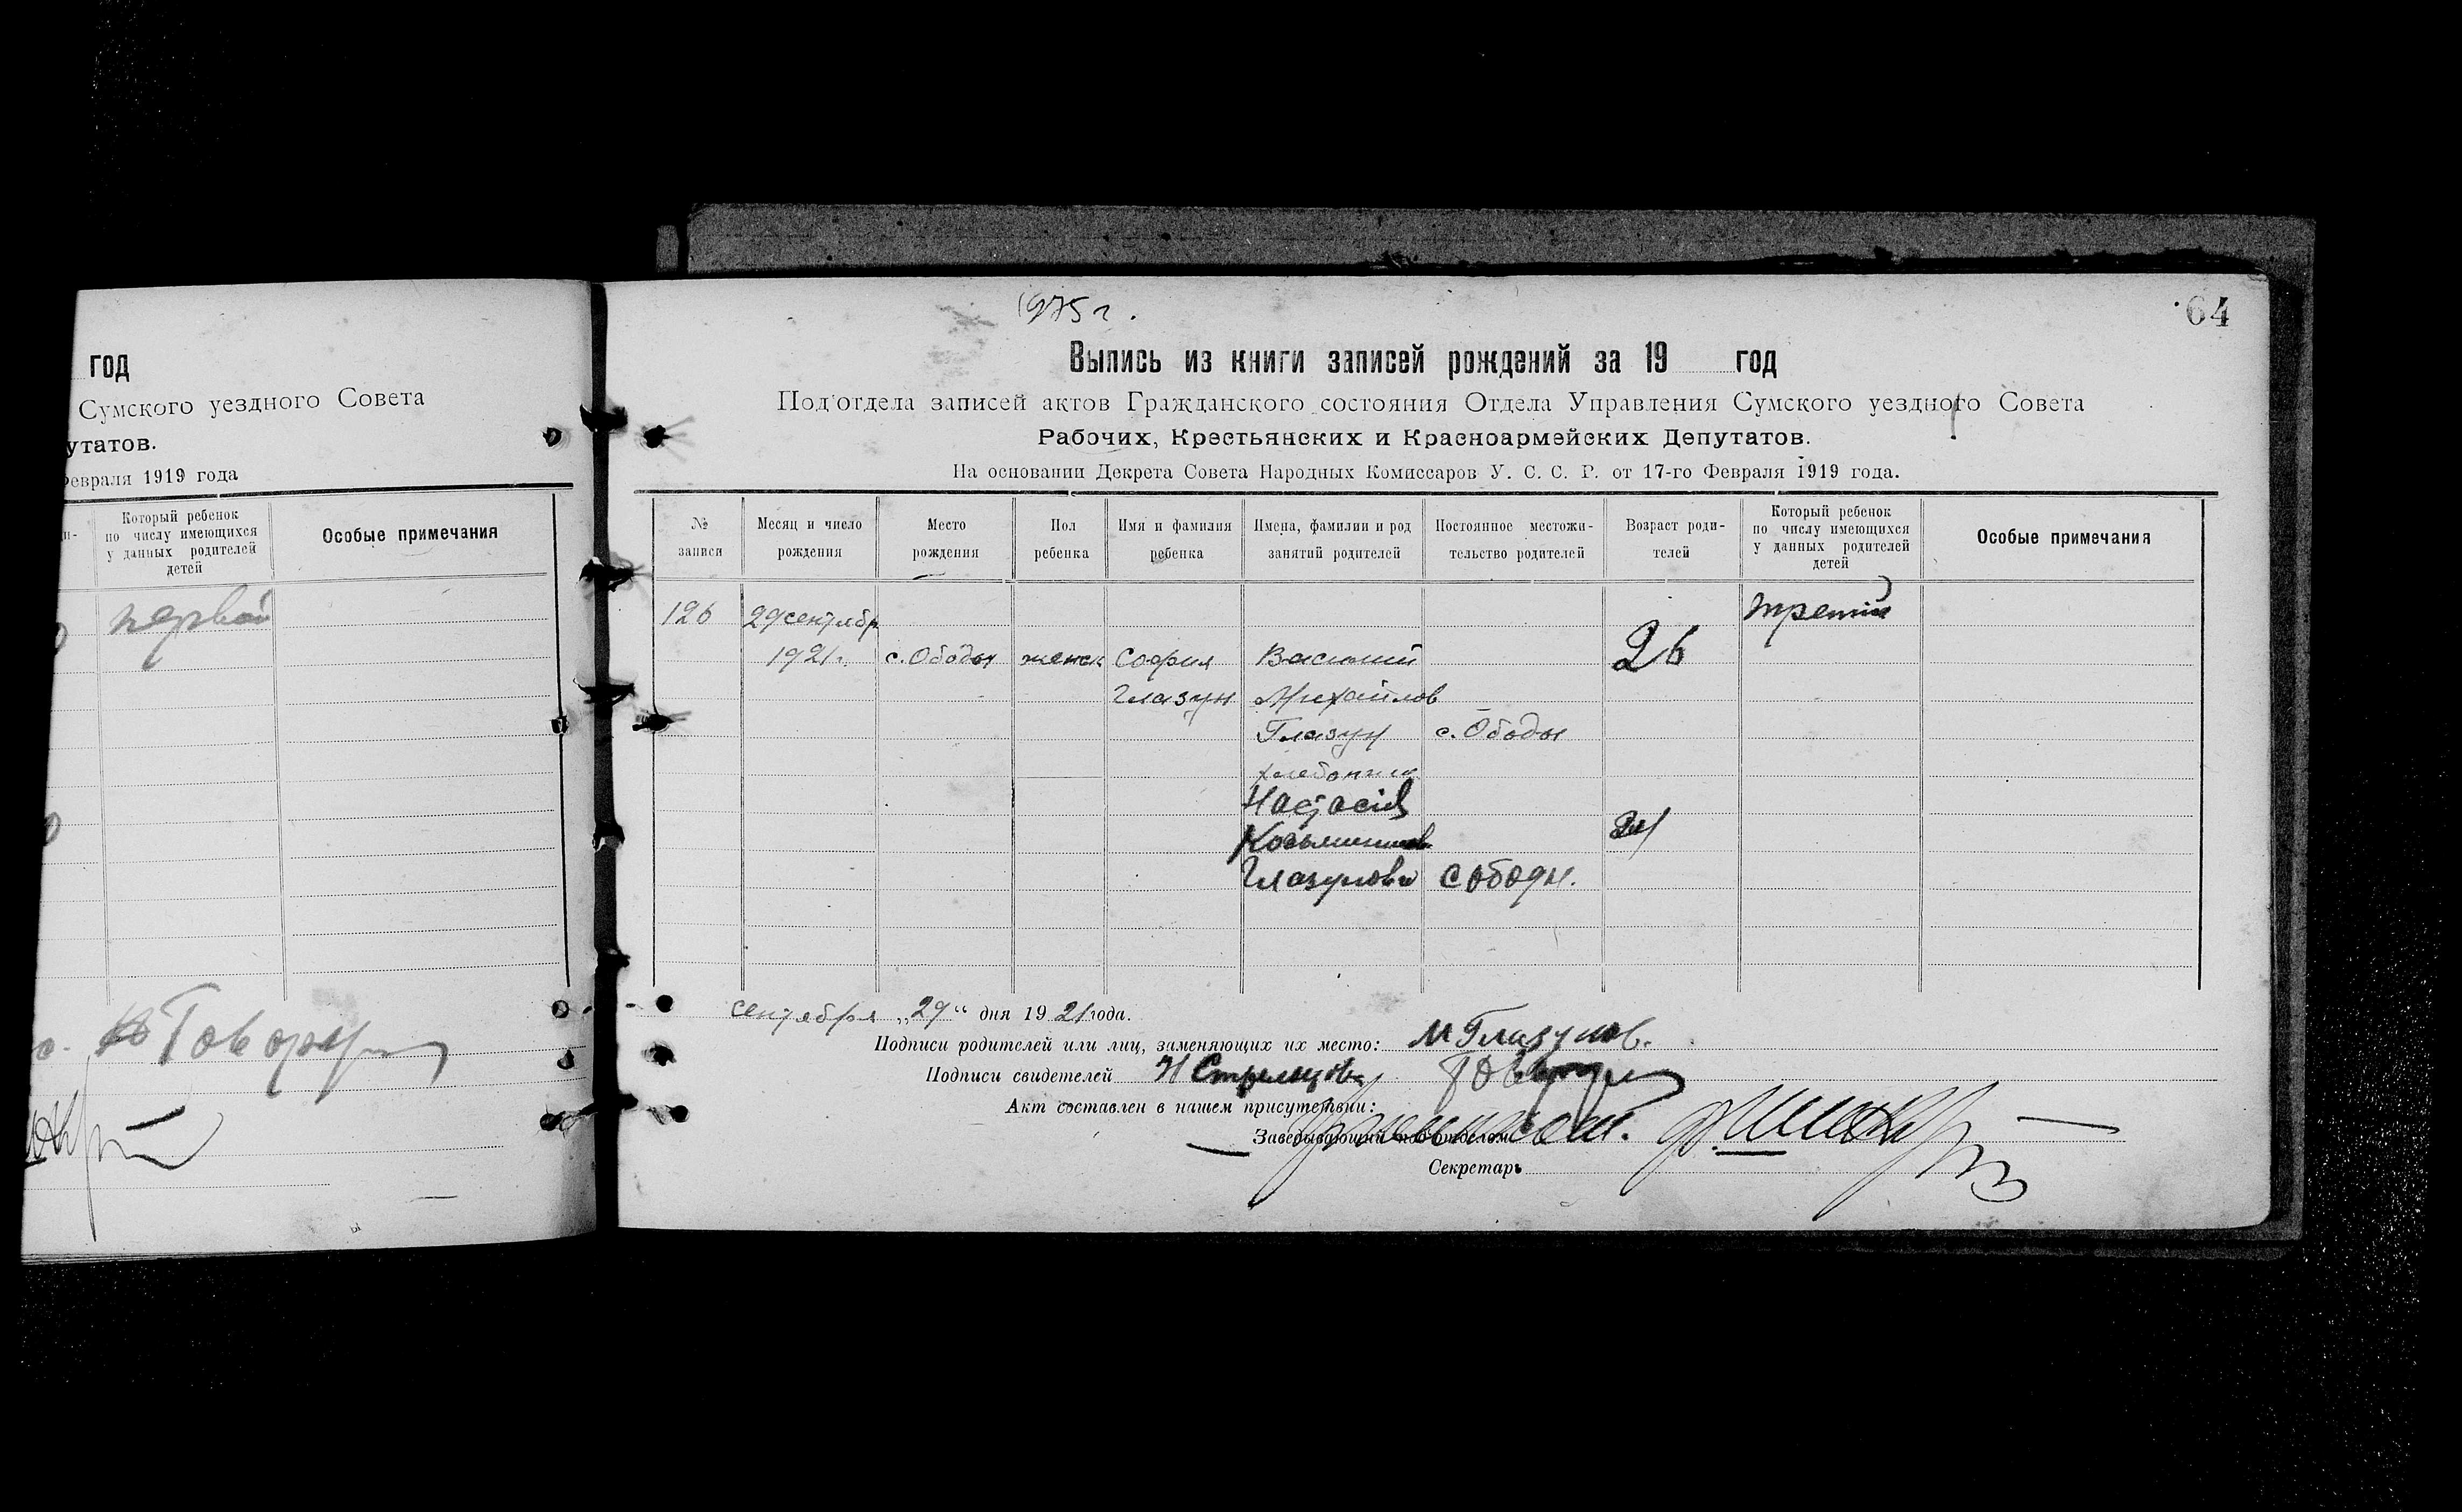 год
Сумского уездного Совета
утатов.
февраля 1919 года
Который ребенок
по числу имеющихся
у данных родителей
детей
Особые примечания
первой
Говорун
1975 г.
64
Выпись из книги записей рождений за 19 год
Под'отдела записей актов Гражданского состояния Отдела Управления Сумского уездного Совета
Рабочих, Крестьянских и Красноармейских Депутатов.
На основании Декрета Совета Народных Комиссаров У. С. С. Р. от 17-го Февраля 1919 года.
№ записи
Месяц и число рождения
Место рождения
Пол ребенка
Имя и фамилия ребенка
Имена, фамилии и род занятий родителей
Постоянное местожи-тельство родителей
Возраст роди-телей
Который ребенок по числу имеющихся у данных родителей детей
Особые примечания
126 29 сентябр третий
1921 г. с. Ободы женск София Василий 26
Глазун Михайлов
Глазун с. Ободы
хлебопаш
Козьминична
Глазунова с Ободы.
сентября „29“ дня 1921 года.
Подписи родителей или лиц, заменяющих их место: М Глазунов.
Подписи свидетелей Н Стрельцов
Акт составлен в нашем присутствии:
Заведывающий под'отделом
Секретарь